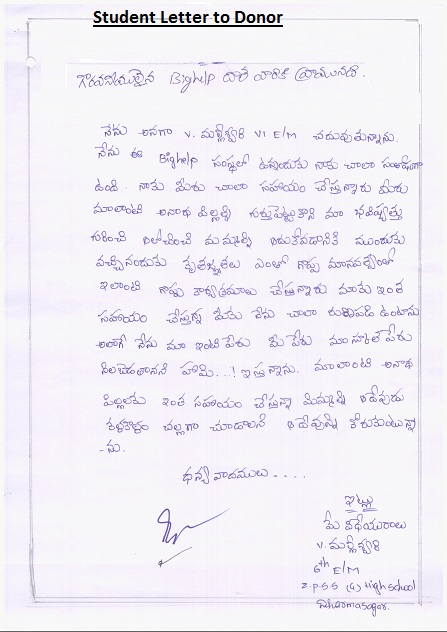 Student Letter to Donor
గౌరవనీయులైన Bighelp దాత వారికి
నేను అనగా V. మల్లేశ్వరి VI E/M చదువుతున్నాను.
నేను ఈ Bighelp సంస్థలో ఉన్నందుకు నాకు చాలా సంతోషంగా
ఉంది. నాకు మీరు చాలా సహాయం చేస్తున్నారు మీరు
మాలాంటి అనాథ పిల్లల్ని గుర్తుపెట్టుకొని మా భవిష్యత్తు
గురించి ఆలోచించి మమ్మల్ని ఆదుకోవడానికి ముందుకు
వచ్చినందుకు కృతజ్ఞతలు ఎంతో గొప్ప మానవత్వంతో
ఇలాంటి గొప్ప కార్యక్రమాలు చేస్తున్నారు మాకు ఇంత
సహాయం చేస్తున్న మీకు నేను చాలా రుణపడి ఉంటాను
అలాగే నేను మా ఇంటి పేరు మీ పేరు మా స్కూల్ పేరు
నిలబెడతానని హామి...! ఇస్తున్నాను. మాలాంటి అనాథ
పిల్లలకు ఇంత సహాయం చేస్తున్నా మిమ్మల్ని ఆదేవుడు
చల్లగా చూడాలని ఆదేవున్ని కోరుకుంటున్నా
-ను.
ధన్యవాదములు ....
ఇట్లు
మీ విధేయురాలు
V. మల్లేశ్వరి
6th E/M
Z.P.S.S (G) High school
Dharmasagar.